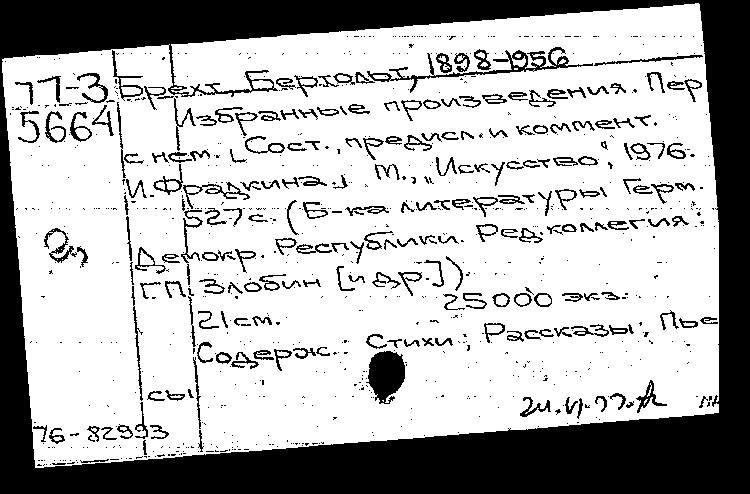 77-3 Брехт, Бертольт, 1898-1956
5664 Избранные произведения. Пер
с нем. [Сост., предисл. и коммент.
И. Фрадкина.] М., "Искусство", 1976.
527с. (Б-ка литературы Герм.
Демокр. Республики. Ред. коллегия:
Г.П. Злобин [и др.])
21см. 25000 экз.
Содерж.: Стихи; Рассказы; Пье
сы
76-82993